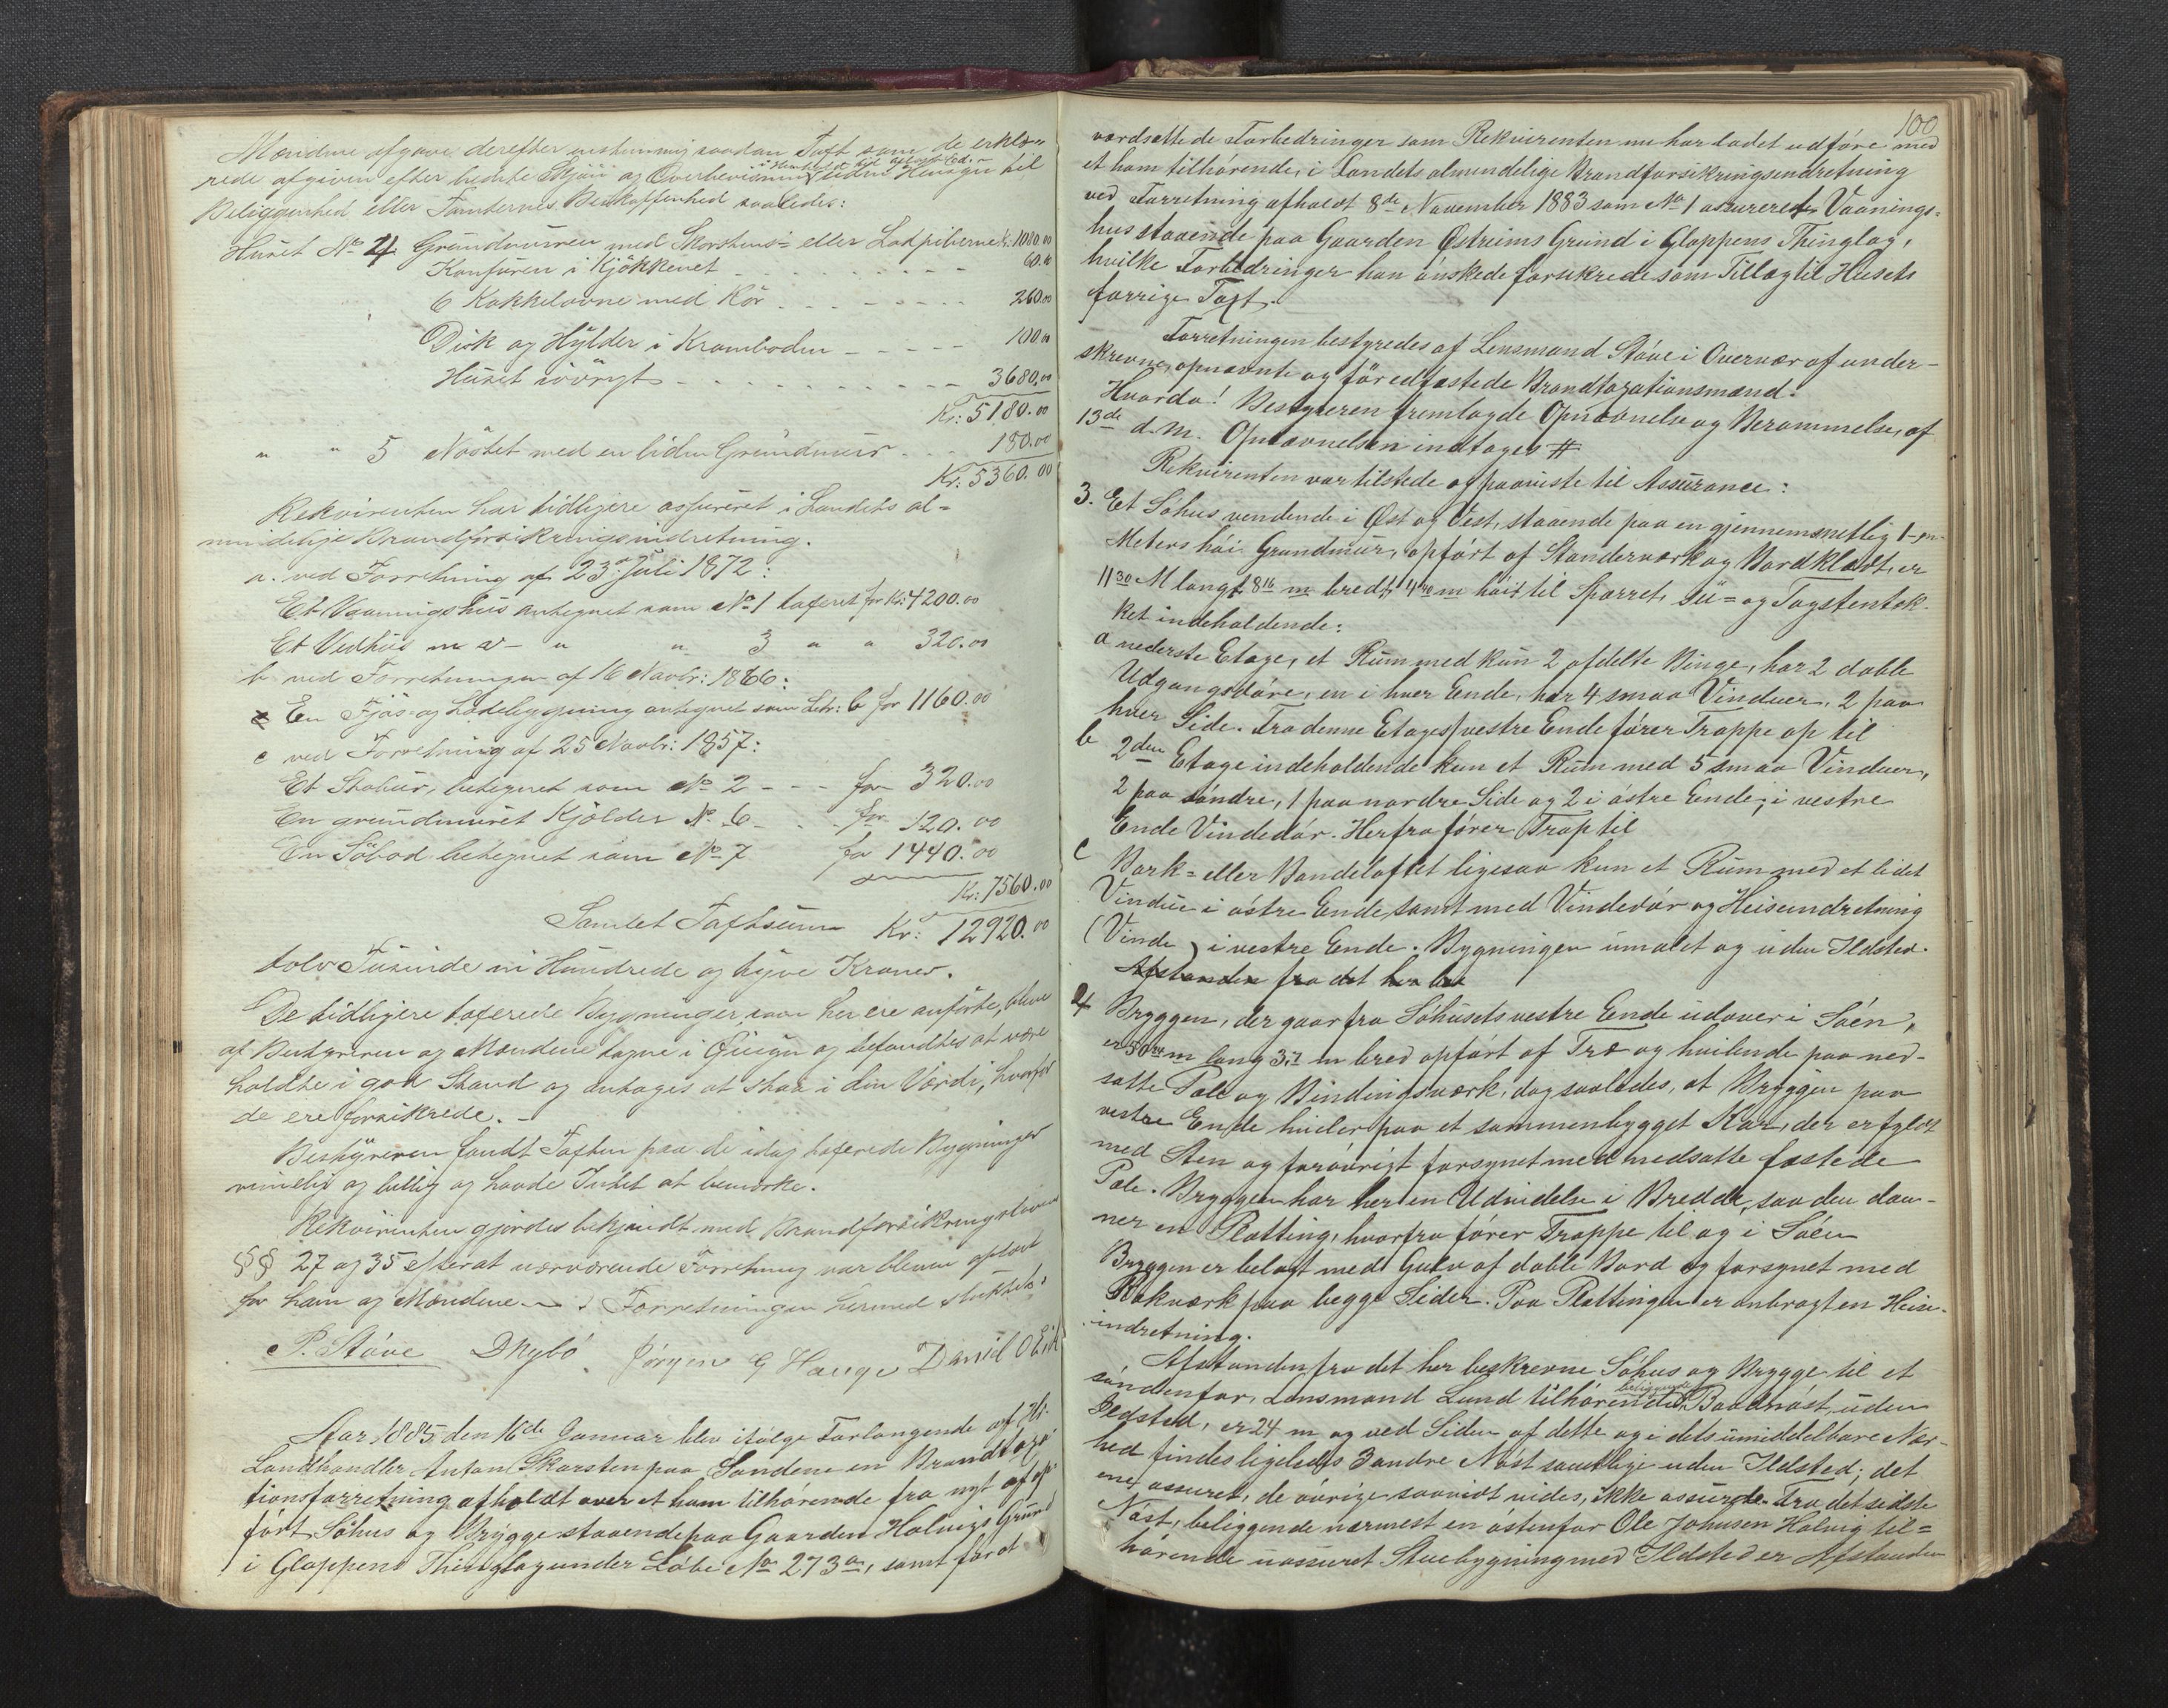 Mændene afgave derefter enstemmig saadan Taxt som de erklæ-
rede afgiven efter bedste Skjøn og Overbevisning i Henhold til uden Hensyn til
Beliggenhed eller Tomternes Beskaffenhed saaledes:
Huset No 4 Grundmuren med Skorstens- eller Ladpiberne Kr: 1080.00
Komfuren i Kjøkkenet - - - - 60.00
6 Kakkelovne med Rør - - - - 260.00
Disk og Hylder i Kramboden - - - - 100.00
Huset iøvrigt - - - - 3680.00
Kr: 5180.00
" " 5 Nøstet med en liden Grundmur - - 180.00
Kr: 5360.00
Rekvirenten har tidligere assureret i Landets al-
mindelige Brandforsikringsindretning.
a. ved Forretning af 23de Juli 1872:
Et Vaaningshus antegnet som No 1 taxeret for Kr: 4200.00
Et Vedhus m v - " " 3 " " 320.00
b ved Forretningen af 16 Novbr: 1866:
En Fjøs- og Ladebygning antegnet som Litr: b for 1160.00
c ved Forretning af 25 Novbr: 1857:
Et Stabur, betegnet som No 2 - - - for 320.00
En grundmuret Kjelder No 6 - - for 120.00
En Søbod betegnet som No 7 for 1440.00
Kr: 7560.00
Samlet Taxtsum Kr: 12920.00
tolv Tusinde ni Hundrede og tyve Kroner.
De tidligere taxerede Bygninger, som her ere anførte, bleve
af Bestyreren og Mændene tagne i Øiesyn og befandtes at være
holdte i god Stand og antages at staa i den Værdi, hvorfor
de ere forsikrede. -
Bestyreren fandt Taxten paa de idag taxerede Bygninger
rimelig og billig og havde Intet at bemærke.
Rekvirenten gjordes bekjendt med Brandforsikringsloven
§§ 27 og 35 efterat nærværende Forretning var bleven oplæst
for ham og Mændene. Forretningen hermed sluttet.
P. Støve D Rybø Jørgen G Hauge Daniel O Eik
Aar 1885 den 16de Januar blev ifølge Forlangende af Hr.
Landhandler Anton Skarsten paa Sandene en Brandtaxa-
tionsforretning afholdt over et ham tilhørende fra nyt af op-
ført Søhus og Brygge staaende paa Gaarden Holvigs Grund
i Gloppens Thinglag under Løbe No 273a, samt for at
100
værdsætte de Forbedringer som Rekvirenten nu har ladet udføre med
et ham tilhørende, i Landets almindelige Brandforsikringsindretning
ved Forretning afholdt 8de November 1883 som No 1 assureret Vaanings-
hus staaende paa Gaarden Østreims Grund i Gloppens Thinglag,
hvilke Forbedringer han ønskede forsikrede som Tillæg til Husets
forrige Taxt.
Forretningen bestyredes af Lensmand Støve i Overvær af under-
skrevne, opnævnte og før edfæstede Brandtaxationsmænd.
Hvorda! Bestyreren fremlagde Opnævnelse og Berammelse, af
13de d. M. Opnævnelsen indtages #
Rekvirenten var tilstede og paaviste til Assurance:
3. Et Søhus vendende i Øst og Vest, staaende paa en gjennemsnetlig 1-en-
Meters høi Grundmur, opført af Stænderværk og Bordklædt, er
11 30 M langt, 8 16 m bredt, 4 40 m høit til Sparret, su- og Tagstentæk-
ket indeholdende:
a nederste Etage, et Rum med kun 2 afdelte Binge, har 2 doble
Udgangsdøre, en i hver Ende, har 4 smaa Vinduer, 2 paa
hver Side. Fra denne Etages vestre Ende fører Trappe op til
b 2den Etage indeholdende kun et Rum med 5 smaa Vinduer,
2 paa søndre, 1 paa nordre Side og 2 i østre Ende, i vestre
Ende Vindedør. Herfra fører Trap til
c Mørk- eller Bandeloftet ligesaa kun et Rum med et lidet
Vindue i østre Ende samt med Vindedør og Heiseindretning
(Vinde) i vestre Ende. Bygningen umalet og uden Ildsted.
Afstanden fra det her be
4 Bryggen, der gaar fra Søhusets vestre Ende udover i Søen,
er 50 m lang 3,7 m bred opført af Træ og hvilende paa ned-
satte Pæle og Bindingsværk, dog saaledes, at Bryggen paa
vestre Ende hviler paa et sammenbygget Kar, der er fyldt
med Sten og forøvrigt forsynet med nedsatte fæstede
Pæle. Bryggen har her en Udvidelse i Bredde, saa den dan-
ner en Platting, hvorfra fører Trappe til og i Søen
Bryggen er belagt med Gulv af doble Bord og forsynet med
Rækværk paa begge Sider. Paa Plattingen er anbragt en Heise-
indretning.
Afstanden fra det her beskrevne Søhus og Brygge til et
søndenfor, Lensmand Lund tilhørende, beliggende Baadnøst, uden
Ildsted, er 24 m og ved Siden af dette og i dets umiddelbare Nær-
hed findes ligeledes 3 andre Nøst samtlige uden Ildsted; det
ene assuret, de øvrige saavidt vides, ikke assurede. Fra det sidste
Nøst, beliggende nærmest en østenfor Ole Johnsen Holvig til-
hørende uassuret Stuebygning med Ildsted er Afstanden